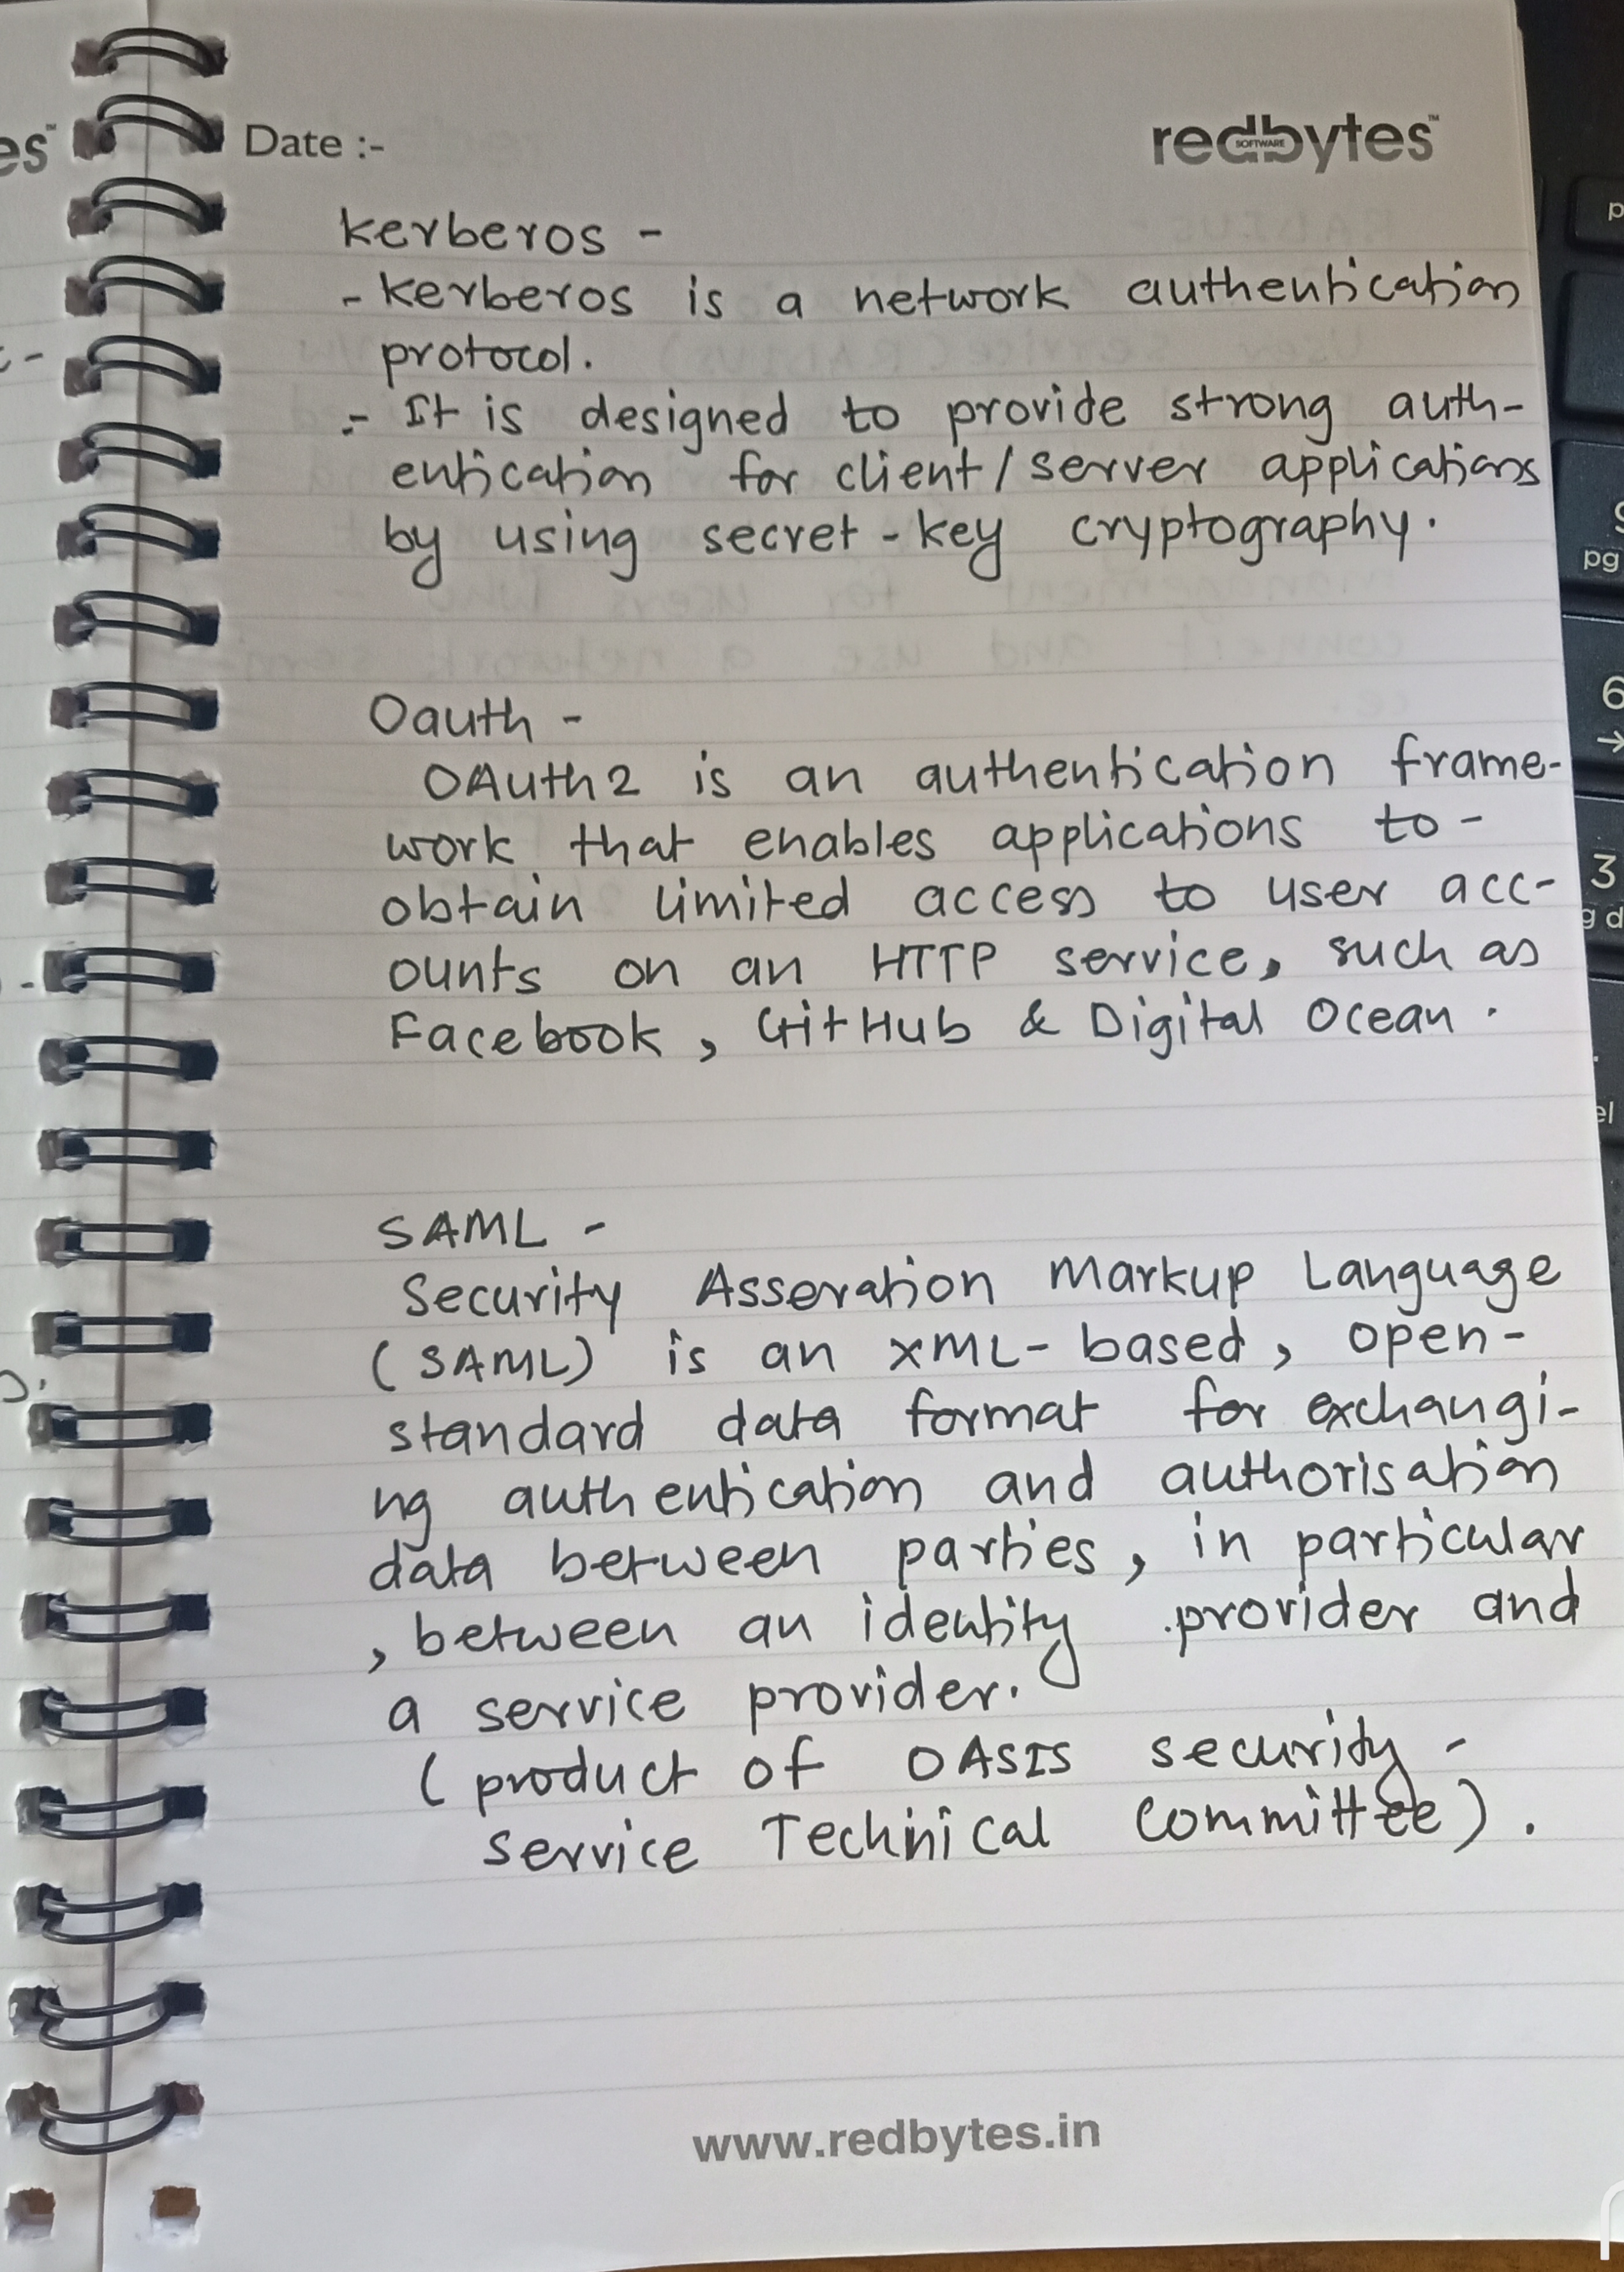 es
Date :-
redbytes™
SOFTWARE
kerberos -
- kerberos is a network authentication
protocol.
:- It is designed to provide strong auth-
entication for client/server applications
by using secret-key cryptography.
Oauth -
OAuth2 is an authentication frame-
work that enables applications to-
obtain limited access to user acc-
ounts on an HTTP service, such as
Facebook, GitHub & Digital Ocean.
SAML -
Security Asseration Markup Language
(SAML) is an XML-based, open-
standard data format for exchangi-
ng authentication and authorisation
data between parties, in particular
, between an identity provider and
a service provider.
(product of OASIS security-
service Technical Committee).
www.redbytes.in
pg
6
→
3
g d
el